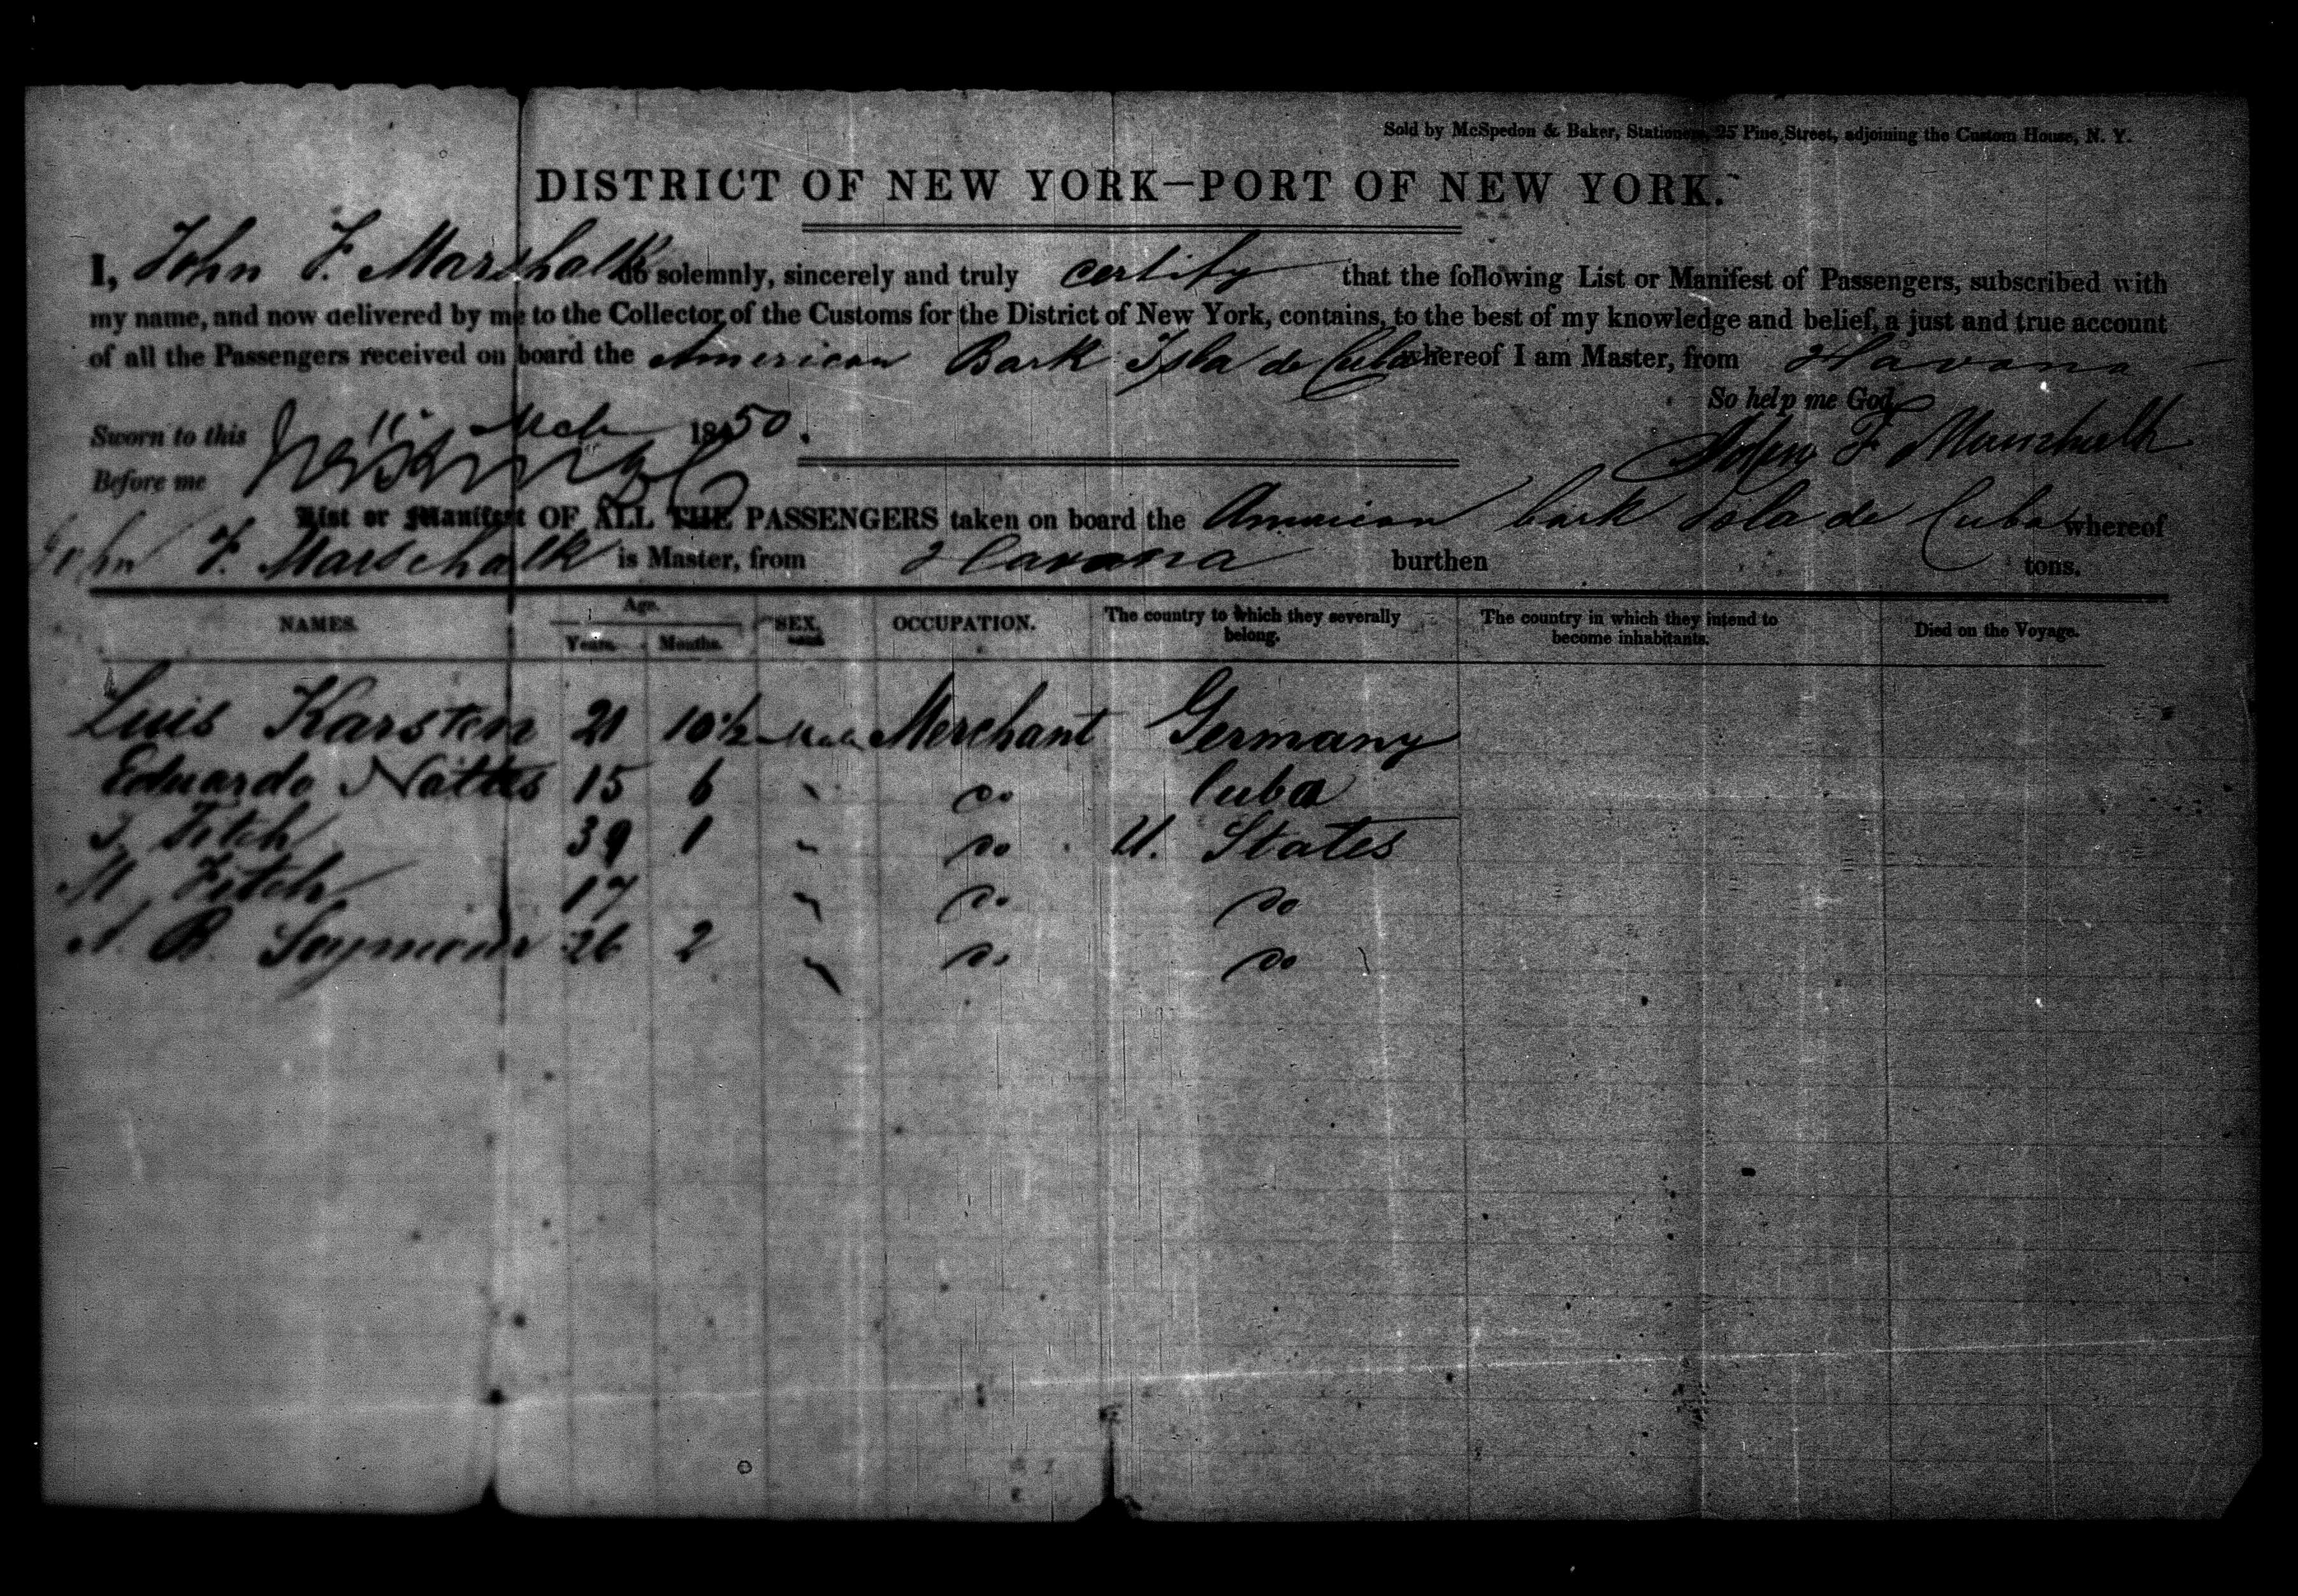 Sold by McSpedon & Baker, Stationers, 25 Pine Street, adjoining the Custom House, N. Y.
DISTRICT OF NEW YORK—PORT OF NEW YORK.
I, John F. Marschalk do solemnly, sincerely and truly certify that the following List or Manifest of Passengers, subscribed with
my name, and now delivered by me to the Collector of the Customs for the District of New York, contains, to the best of my knowledge and belief, a just and true account
of all the Passengers received on board the American Bark Isla de Cuba whereof I am Master, from Havana
So help me God
Sworn to this 11 Mch 1850.
John F Marschalk
Before me
List or Manifest OF ALL THE PASSENGERS taken on board the American bark Isla de Cuba whereof
John F. Marschalk is Master, from Havana burthen tons.
NAMES. Age. Years. Months. SEX. OCCUPATION. The country to which they severally belong. The country in which they intend to become inhabitants. Died on the Voyage.
Luis Karsten 21 10½ Male Merchant Germany
Eduardo 15 6 " do Cuba
Fitch 39 1 " do U. States
M. Fitch 17 " do do
B. Seymour 26 2 " do do